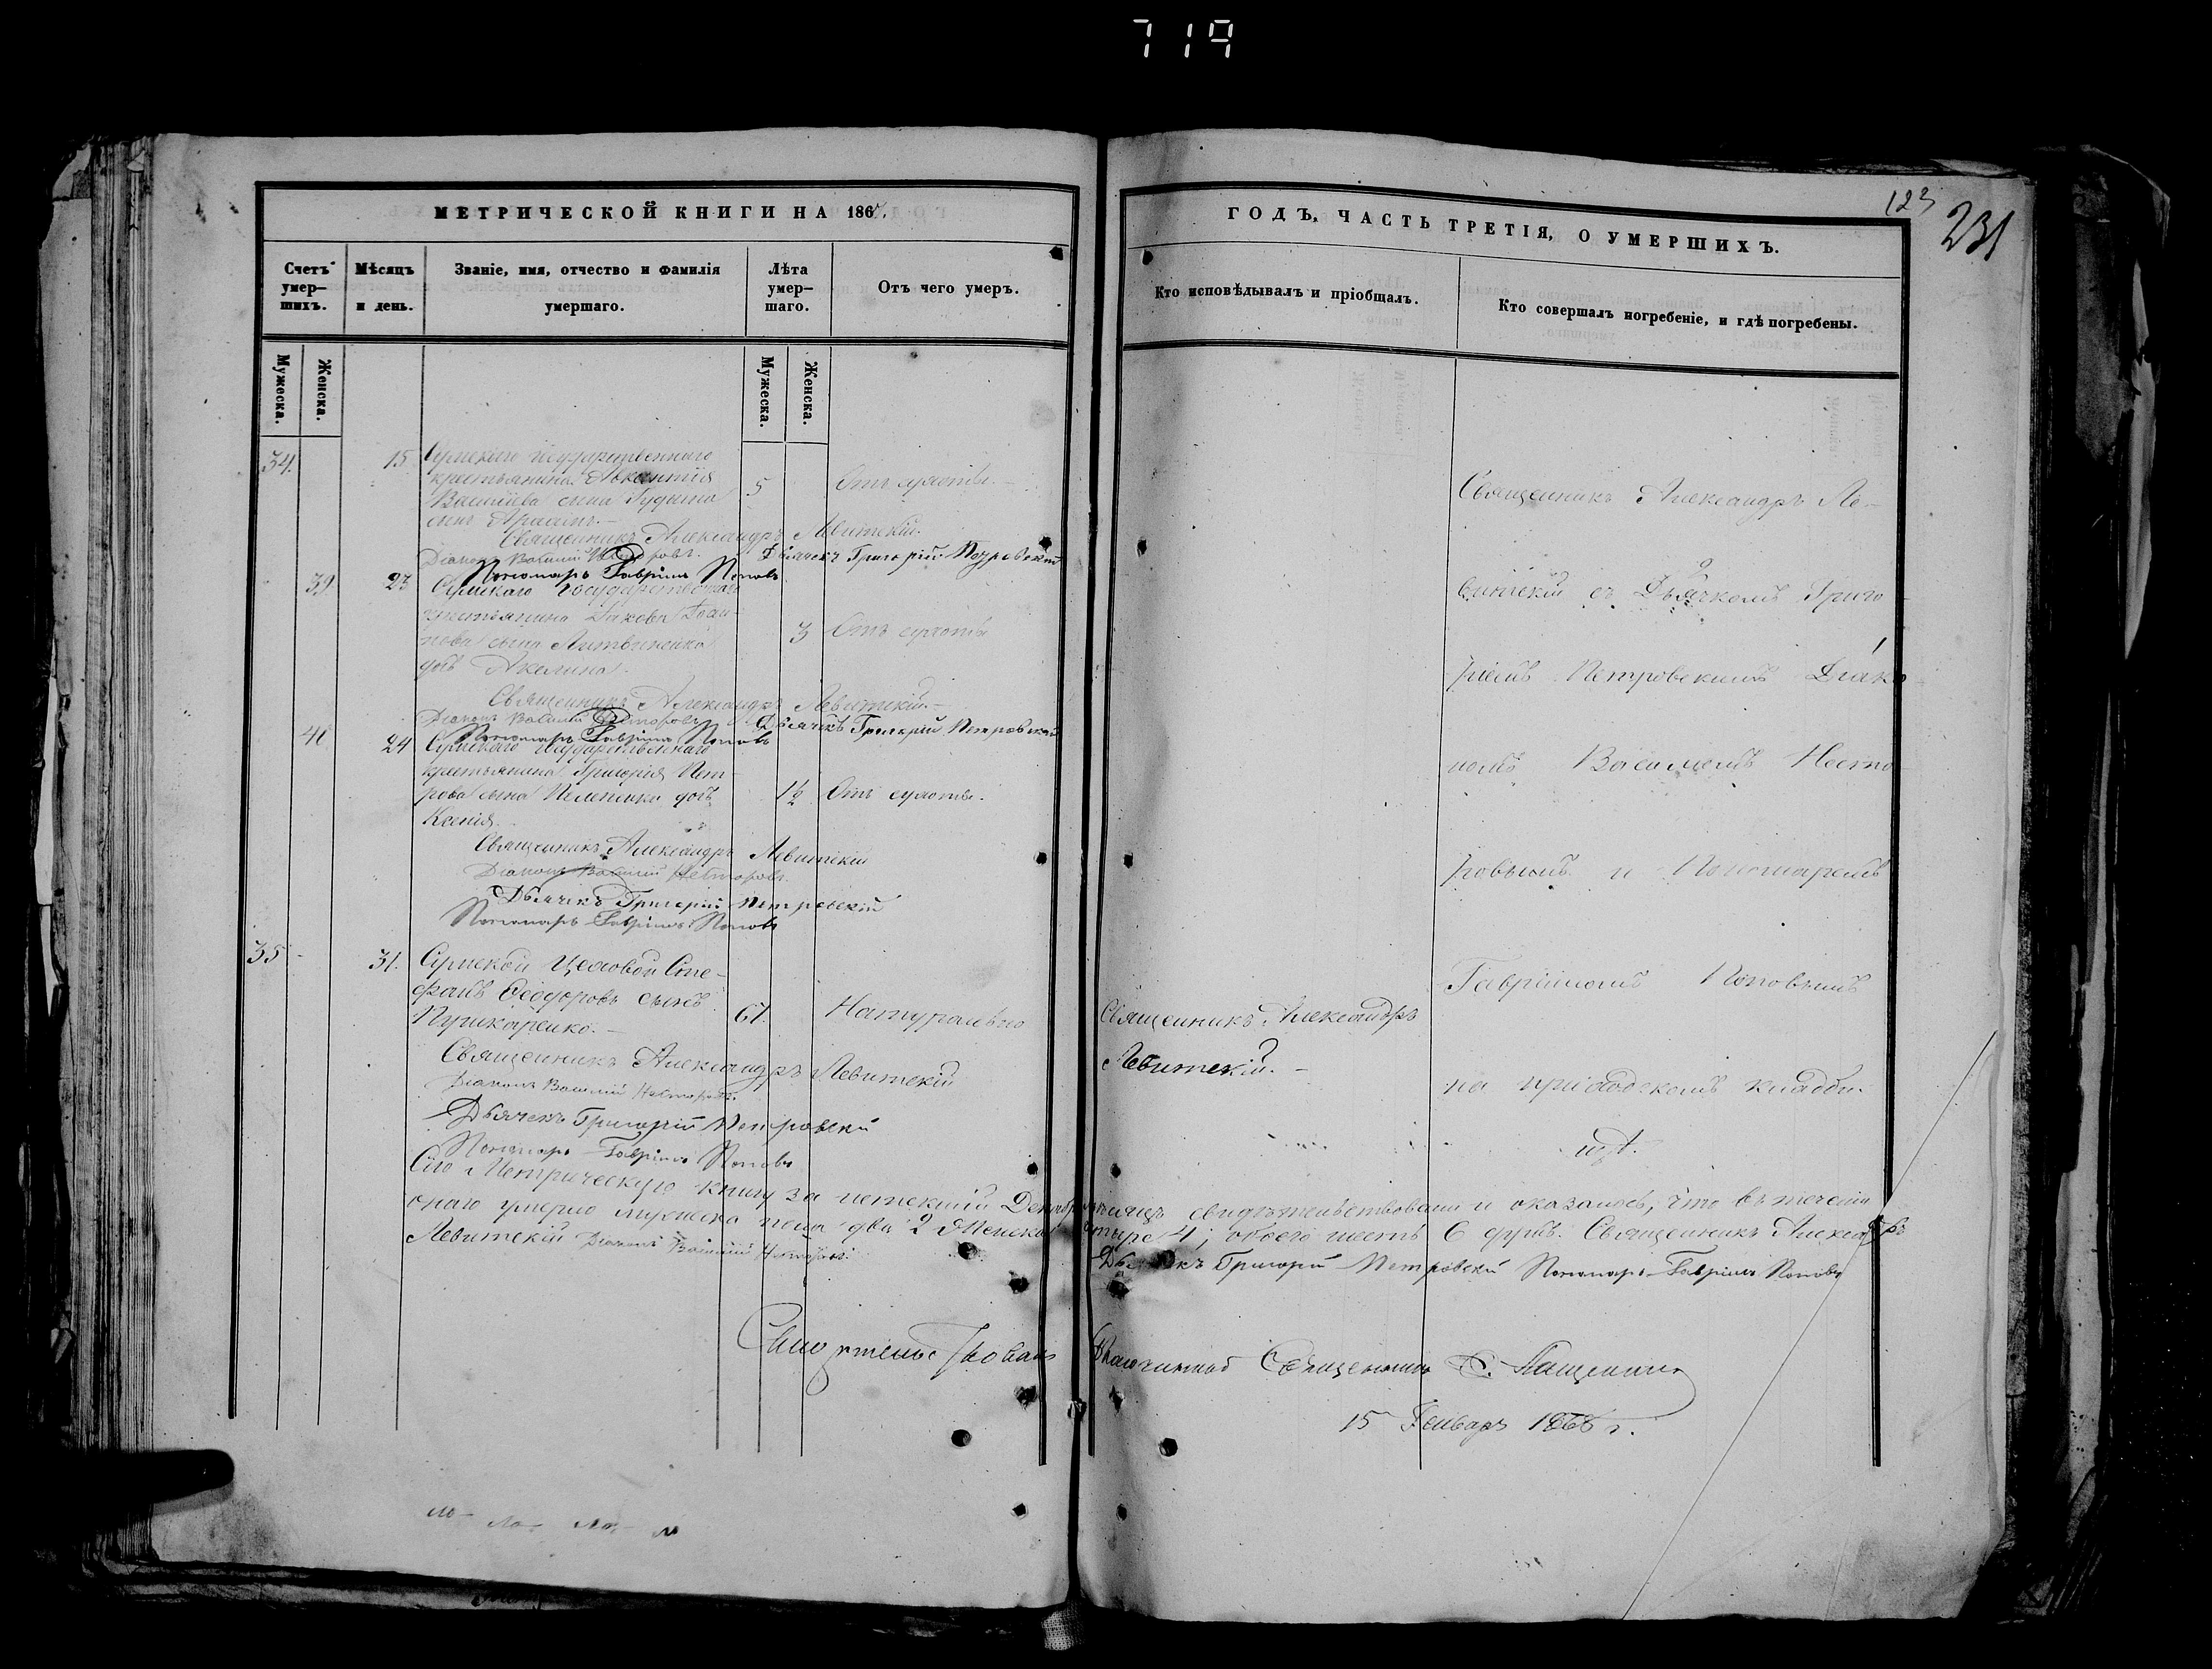 719
МЕТРИЧЕСКОЙ КНИГИ НА 1867.
Счетъ умер-
шихъ.
Мѣсяцъ
и день.
Званіе, имя, отчество и фамилія
умершаго.
Лѣта
умер-
шаго.
Отъ чего умеръ.
Мужеска.
Женска.
Мужеска.
Женска.
34. 15 Сумскаго государственнаго
крестьянина
Василіева сына 5 Отъ сухоты.
сынъ
Священникъ Александръ Левитскій.
Діаконъ Василій Несторовъ. Дьячекъ Григорій Петровскій
Пономарь Гавріилъ Поповъ
39. 23 Сумскаго государственнаго
крестьянина Іакова Іоан-
нова сына Литвиненка 3 Отъ сухоты
дочь Акелина.
Священникъ Александръ Левитскій.
Діаконъ Василій Несторовъ Дьячекъ Григорій Петровскій
Пономарь Гавріилъ Поповъ
40 24 Сумскаго государственнаго
крестьянина Григорія Пет-
рова сына дочь 1½ Отъ сухоты.
Ксенія.
Священникъ Александръ Левитскій
Діаконъ Василій Несторовъ.
Дьячекъ Григорій Петровскій
Пономарь Гавріилъ Поповъ
35 31. Сумской Цеховой Сте-
фанъ Ѳеодоровъ сынъ
Пушкаренко. 67. Натурально
Священникъ Александръ Левитскій
Діаконъ Василій Несторовъ.
Дьячекъ Григорій Петровскій
Пономарь Гавріилъ Поповъ
123
231
ГОДЪ, ЧАСТЬ ТРЕТІЯ, О УМЕРШИХЪ.
Кто исповѣдывалъ и пріобщалъ.
Кто совершалъ погребеніе, и гдѣ погребены.
Священникъ Александръ Ле-
витскій съ Дьячкомъ Григо
ріемъ Петровскимъ Діако
номъ Василіемъ Несто
ровымъ и Пономаремъ
Гавріиломъ Поповымъ
Священникъ Александръ
Левитскій.
на приходскомъ кладби-
щѣ.
Сію Метрическую книгу за истекшій Декабрь мѣсяцъ свидѣтельствовали и оказалось, что въ теченіи
онаго умерло мужеска пола два 2 Женска четыре 4; обоего шесть 6 душъ. Священникъ Александръ
Левитскій Діаконъ Василій Несторовъ. Дьячекъ Григорій Петровскій Пономарь Гавріилъ Поповъ
Свидѣтельствовалъ Благочинный Священникъ
15 Генваря 1868 г.